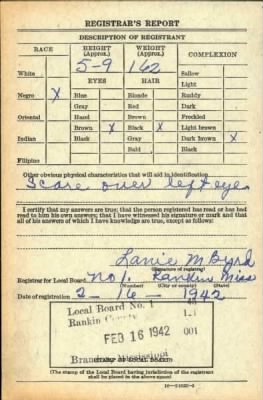 REGISTRAR'S REPORT
DESCRIPTION OF REGISTRANT
RACE HEIGHT (Approx.) WEIGHT (Approx.) COMPLEXION
5-9 162
White EYES HAIR Sallow
Light
Negro X Blue Blonde Ruddy
Gray Red Dark
Oriental Hazel Brown Freckled
Brown X Black X Light brown
Indian Black Gray Dark brown X
Bald Black
Filipino
Other obvious physical characteristics that will aid in identification
Scare over left eye
I certify that my answers are true; that the person registered has read or has had
read to him his own answers; that I have witnessed his signature or mark and that
all of his answers of which I have knowledge are true, except as follows:
Lanie M Byrd
(Signature of registrar)
Registrar for Local Board No 1. Rankin Miss
(Number) (City or county) (State)
Date of registration 2-16-1942
Local Board No. 1 49
Rankin County 121
FEB 16 1942 001
Brandon, Mississippi
(STAMP OF LOCAL BOARD)
(The stamp of the Local Board having jurisdiction of the registrant
shall be placed in the above space)